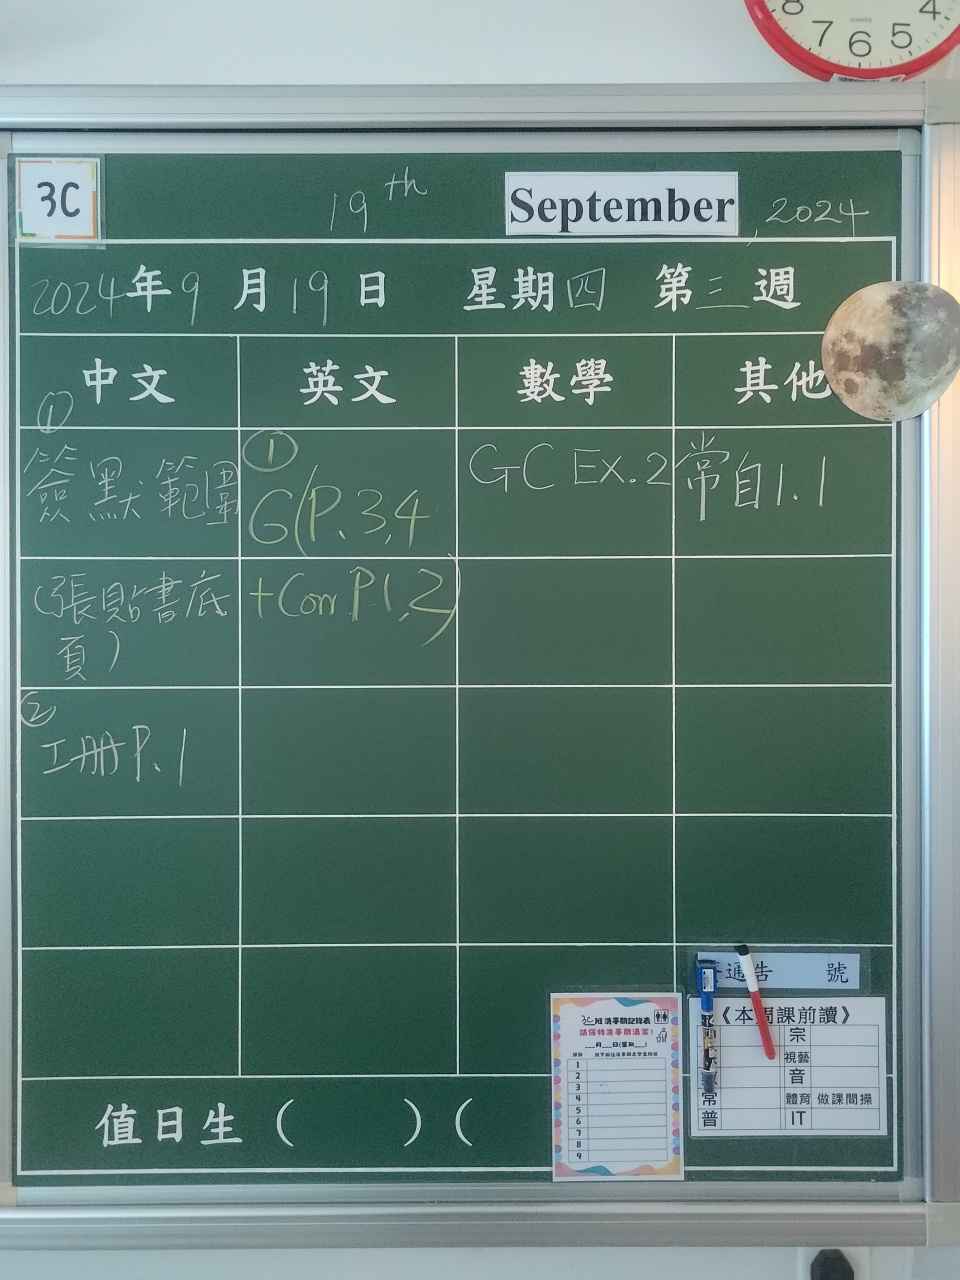 8 7 6 5 4
QUARTZ
3C
19th September, 2024
2024年9月19日 星期四 第三週
中文 英文 數學 其他
①
簽默範圍
(張貼書底
頁)
②
工册P.1
①
G(P.3,4
+Corr P1,2)
GC Ex.2
常自1.1
通告 號
《本周課前讀》
宗
視藝
音
常 體育 做課間操
普 IT
3C班洗手間記錄表
請保持洗手間清潔!
___月___日(星期___)
1
2
3
4
5
6
7
8
9
值日生 ( ) (